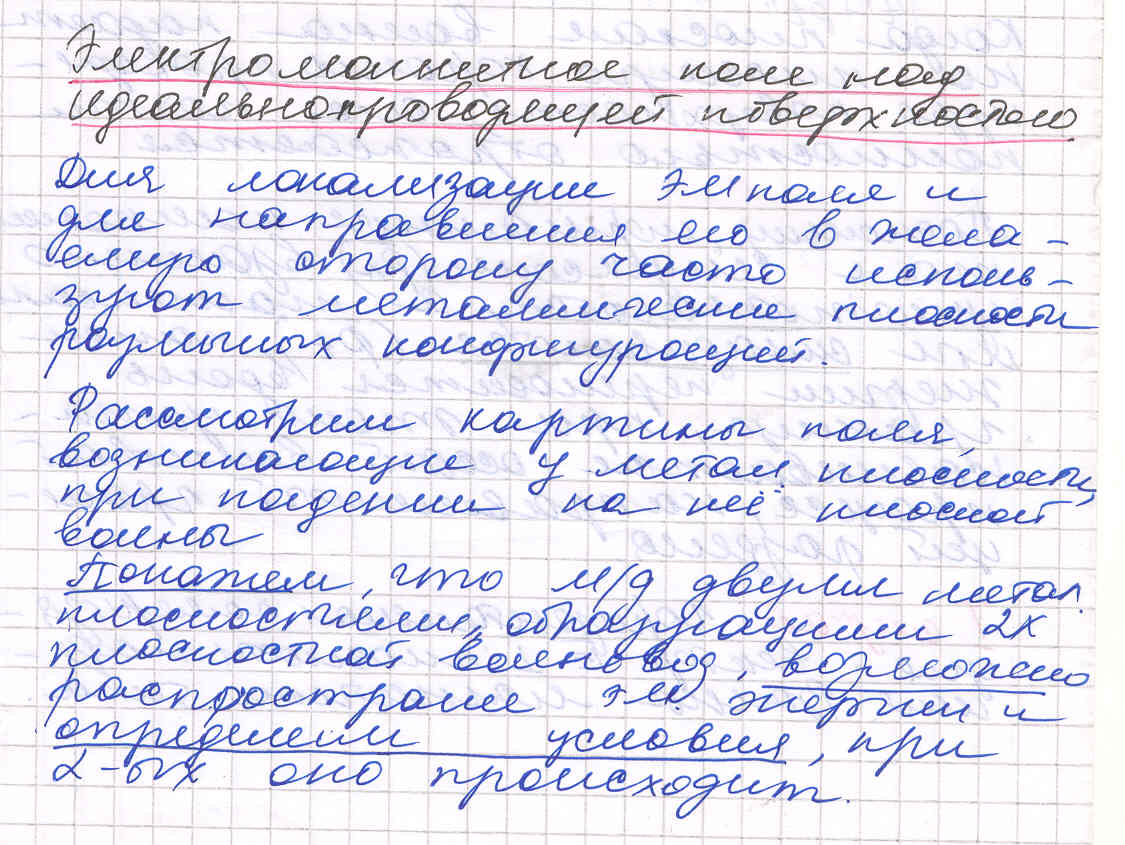 Электромагнитное поле над
идеальнопроводящей поверхностью.
Для локализации ЭМ поля и
для направления его в жела-
емую сторону часто исполь-
зуют металлические плоскости
различных конфигураций.
Рассмотрим картины поля,
возникающие у метал. плоскости,
при падении на неё плоской
волны
Покажем, что м/д двумя метал.
плоскостями, образующими 2х
плоскостной волновод, возможно
распростране эм. энергии и
определим условия, при
к-ых оно происходит.